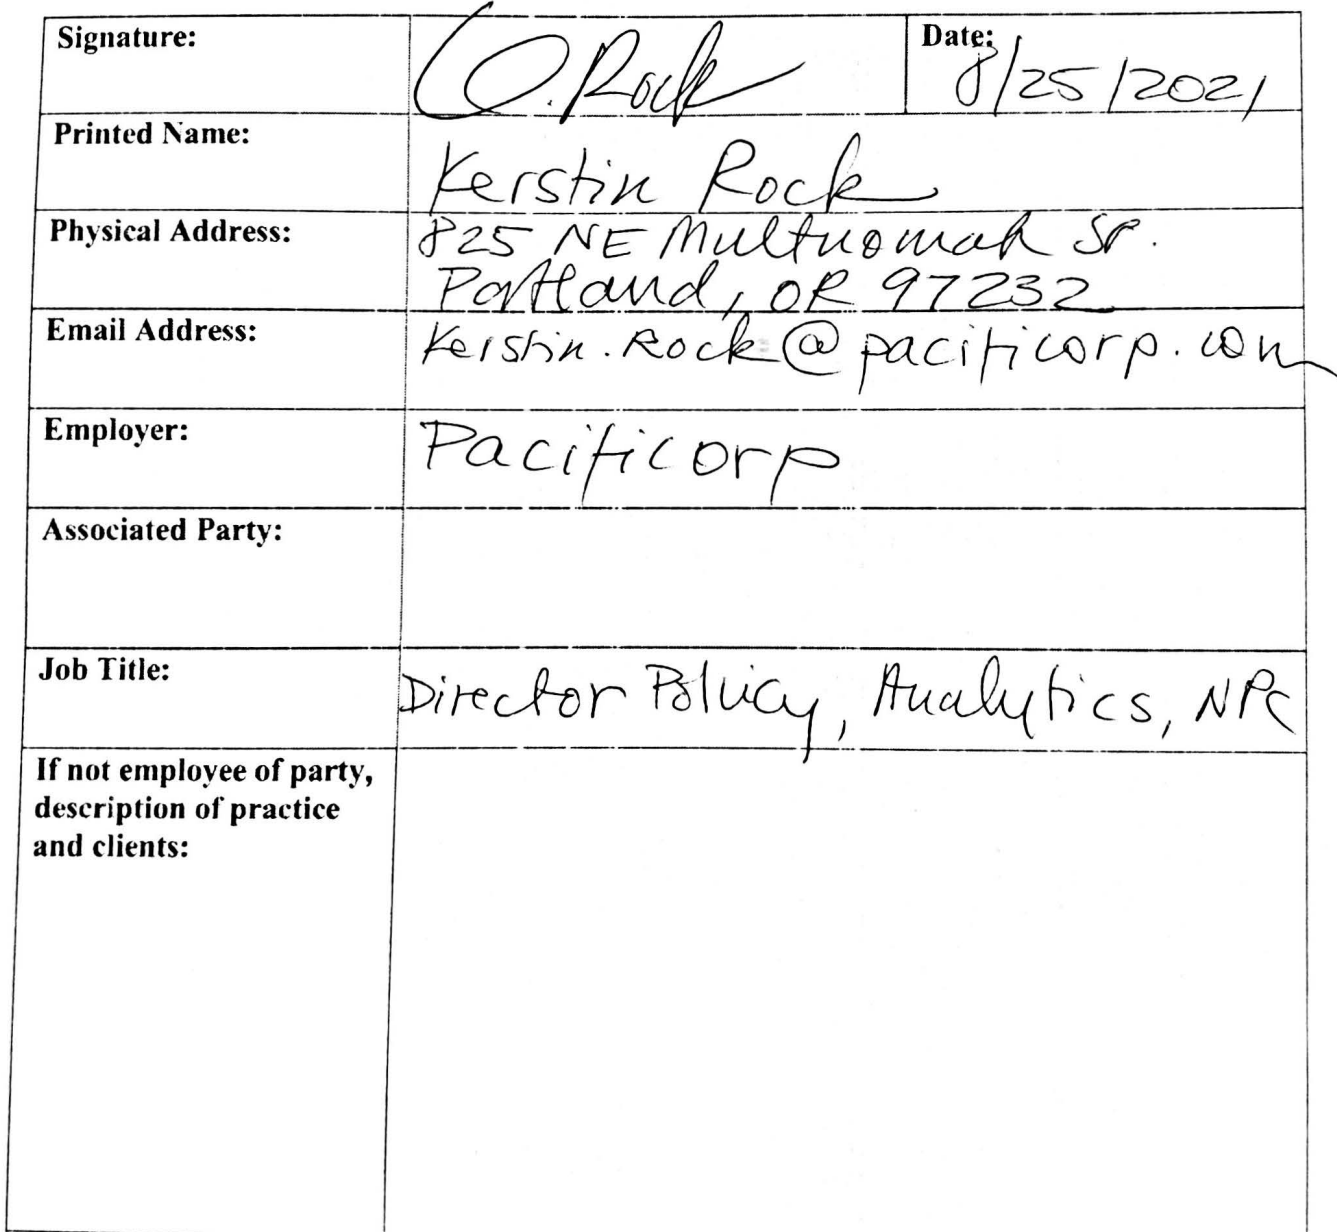 Signature: Rock Date: 8/25/2021
Printed Name: Kerstin Rock
Physical Address: 825 NE Multnomah St.
Portland, OR 97232
Email Address: Kerstin.Rock@pacificorp.com
Employer: Pacificorp
Associated Party:
Job Title: Director Policy, Analytics, NPC
If not employee of party,
description of practice
and clients: